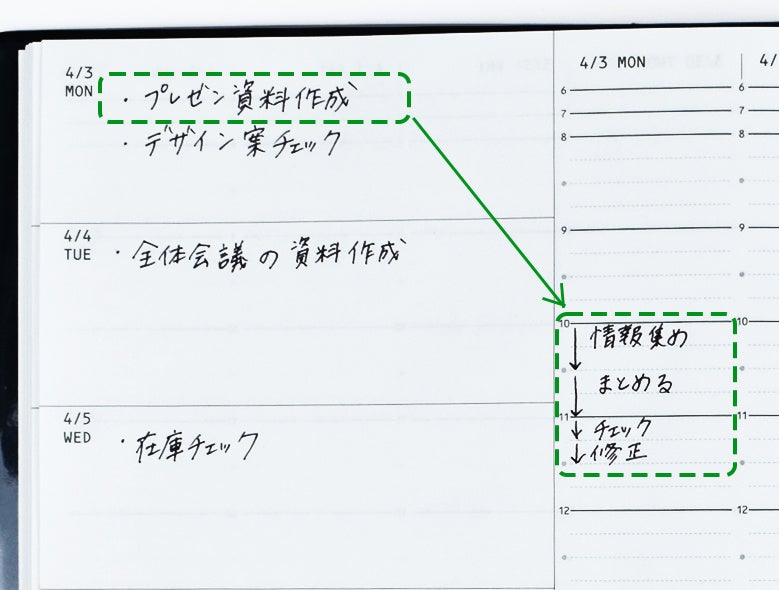 4/3
MON
・プレゼン資料作成
・デザイン案チェック
4/4
TUE
・全体会議の資料作成
4/5
WED
・在庫チェック
4/3 MON
4/
6
6
7
7
8
8
9
9
10
10
情報集め
まとめる
11
11
チェック
修正
12
12